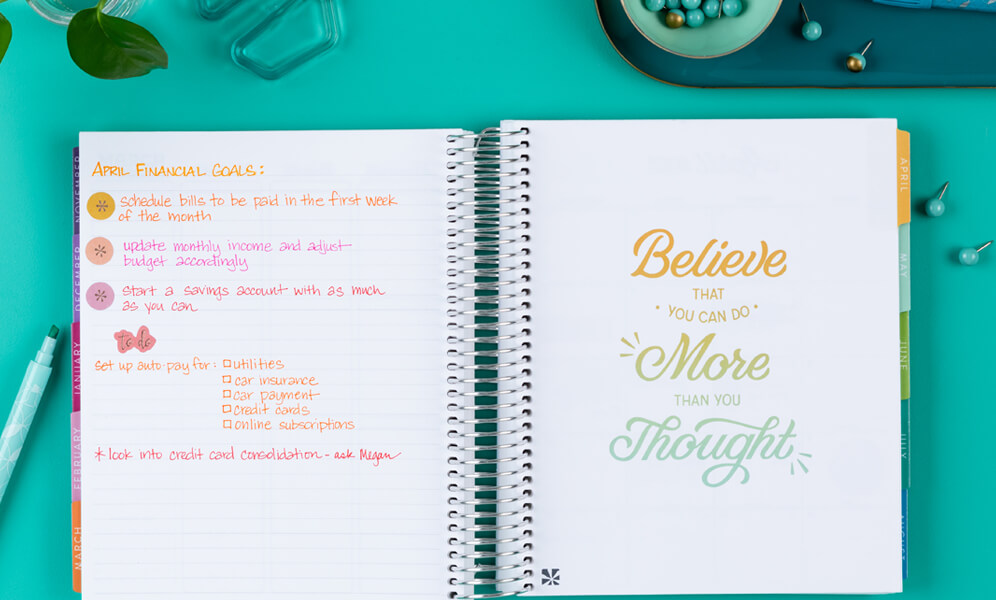 APRIL FINANCIAL GOALS:
schedule bills to be paid in the first week
of the month
update monthly income and adjust
budget accordingly
start a savings account with as much
as you can
to do
set up auto-pay for: utilities
car insurance
car payment
credit cards
online subscriptions
*look into credit card consolidation - ask Megan
NOVEMBER
DECEMBER
JANUARY
FEBRUARY
MARCH
Believe
THAT
• YOU CAN DO •
More
THAN YOU
Thought
APRIL
MAY
JUNE
JULY
AUGUST